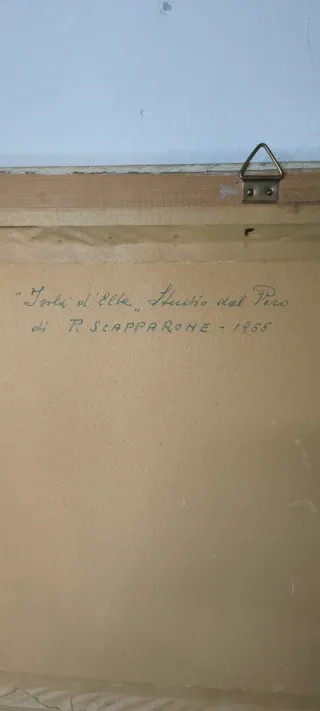 "Isola d'Elba" Studio dal Vero
di P. SCAPPARONE - 1955